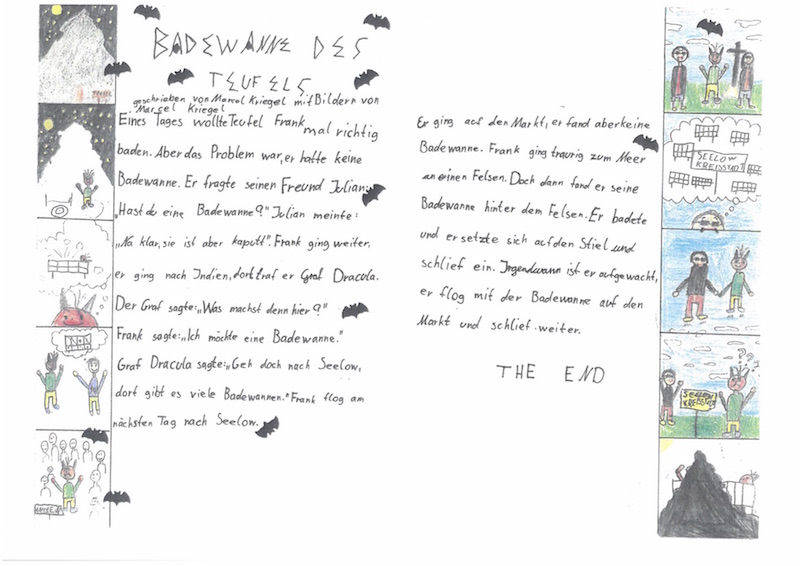 BADEWANNE DES
TEUFELS
geschrieben von Marcel Kriegel mit Bildern von
Marcel Kriegel
Eines Tages wollte Teufel Frank mal richtig
baden. Aber das Problem war, er hatte keine
Badewanne. Er fragte seinen Freund Julian:
„Hast du eine Badewanne?" Julian meinte:
„Na klar, sie ist aber kaputt". Frank ging weiter,
er ging nach Indien, dort traf er Graf Dracula.
Der Graf sagte: „Was machst denn hier?"
Frank sagte: „Ich möchte eine Badewanne."
Graf Dracula sagte: „Geh doch nach Seelow,
dort gibt es viele Badewannen." Frank flog am
nächsten Tag nach Seelow.
Er ging auf den Markt, er fand aber keine
Badewanne. Frank ging traurig zum Meer
an einen Felsen. Doch dann fand er seine
Badewanne hinter dem Felsen. Er badete
und er setzte sich auf den Stiel und
schlief ein. Irgendwann ist er aufgewacht,
er flog mit der Badewanne auf den
Markt und schlief weiter.
THE END
SEELOW
KREISSTADT
SEELOW
KREISSTADT